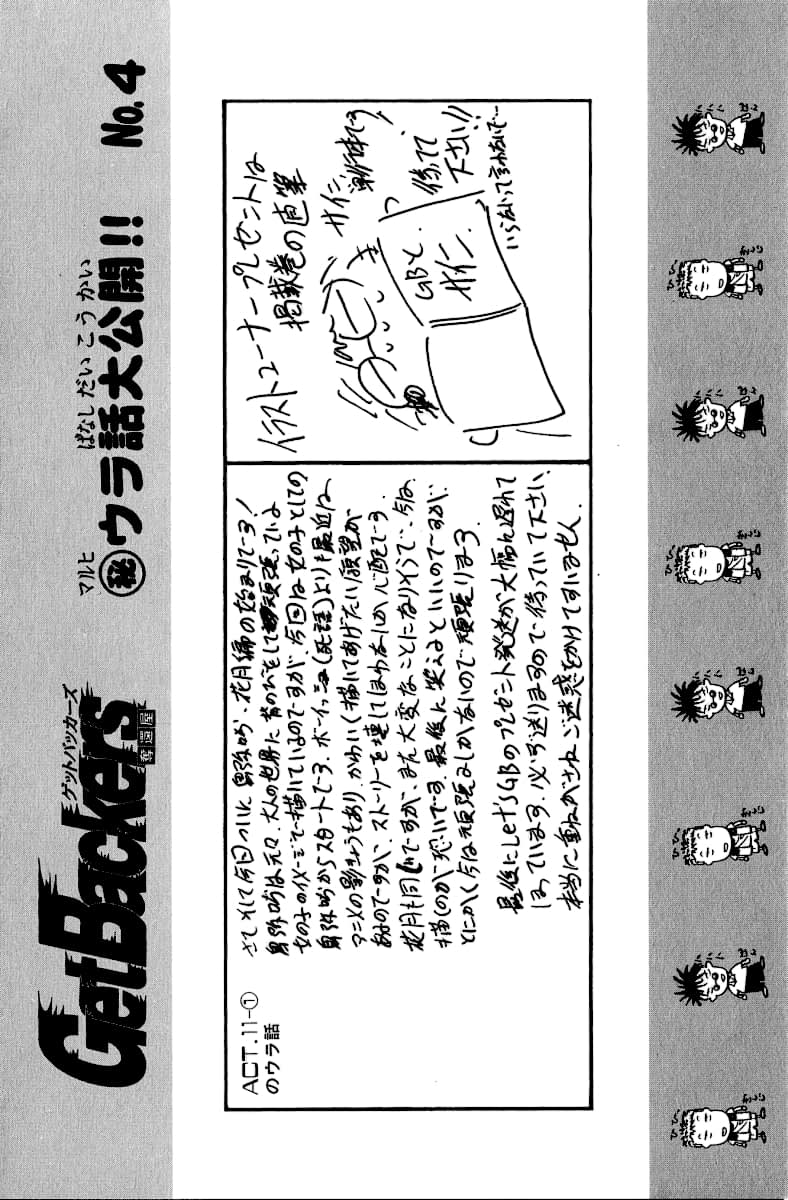 ゲットバッカーズ
GetBackers
奪還屋
マルヒ ぱなし だい こう かい
㊙ウラ話大公開!! No.4
ACT.11-①
のウラ話
さてそして今回ついに 卑弥呼・花月編の始まりです!
卑弥呼は元々、大人の世界に背のびをして頑張っている
女の子のイメージで描いているのですが、今回は女の子としての
卑弥呼からスタートです。ボーイッシュ よりも最近は
アニメの影きょうもあり、かわいく描いてあげたい願望が
あるのですが、ストーリーを壊してしまわないか心配です。
花月も同じですが、また大変なことになりそうで、今は
描くのが恐いです。最後に笑えるといいのですが…
とにかく今は頑張るしかないので頑張ります。
最後にLet'sGBのプレゼント発送が大幅に遅れて
しまっています。必ず送りますので待っていて下さい。
本当に重ねがさねご迷惑をかけてすいません。
イラストコーナープレゼントは
掲載巻の直筆
サイン
単行本です!
GBと
サイン
待ってて
下さい!!
いらないって言わないで…